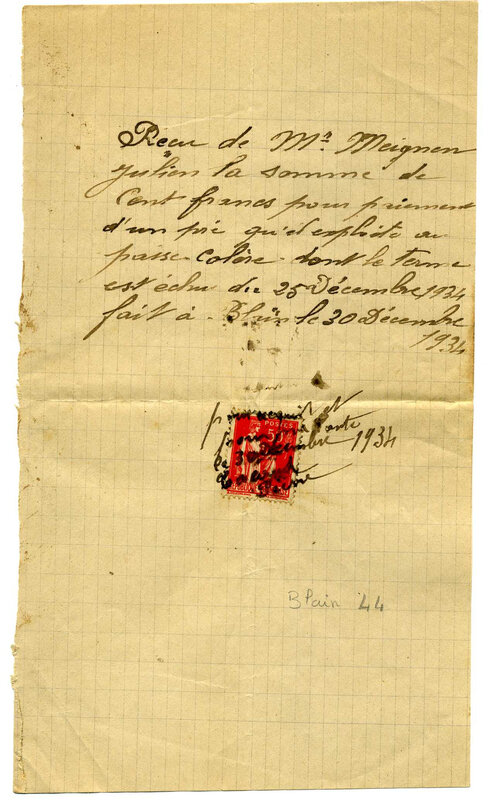 Reçu de Mr Meignen
Julien la somme de
Cent francs pour paiement
d'un pré qu'il exploite au
passe-colère dont le terme
est échu du 25 Décembre 1934
fait à Blain le 30 Décembre
1934
pour acquit et
POSTES
50
pour
le 30 Décembre 1934
Blain 44